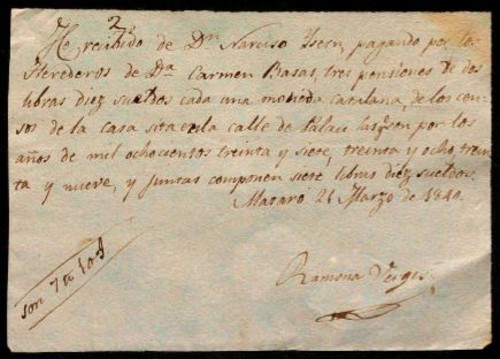 2
He recibido de Dn Narciso Isern, pagando por los
Herederos de Da Carmen Basas, tres pensiones de dos
libras diez sueldos cada una moneda catalana, de los cen-
sos de la casa sita en la calle de Palau por los
años de mil ochocientos treinta y siete, treinta y ocho, trein-
ta y nueve, y juntas componen siete libras diez sueldos.
Mataró 21 Marzo de 1840.
Ramona Verges
son 7 10